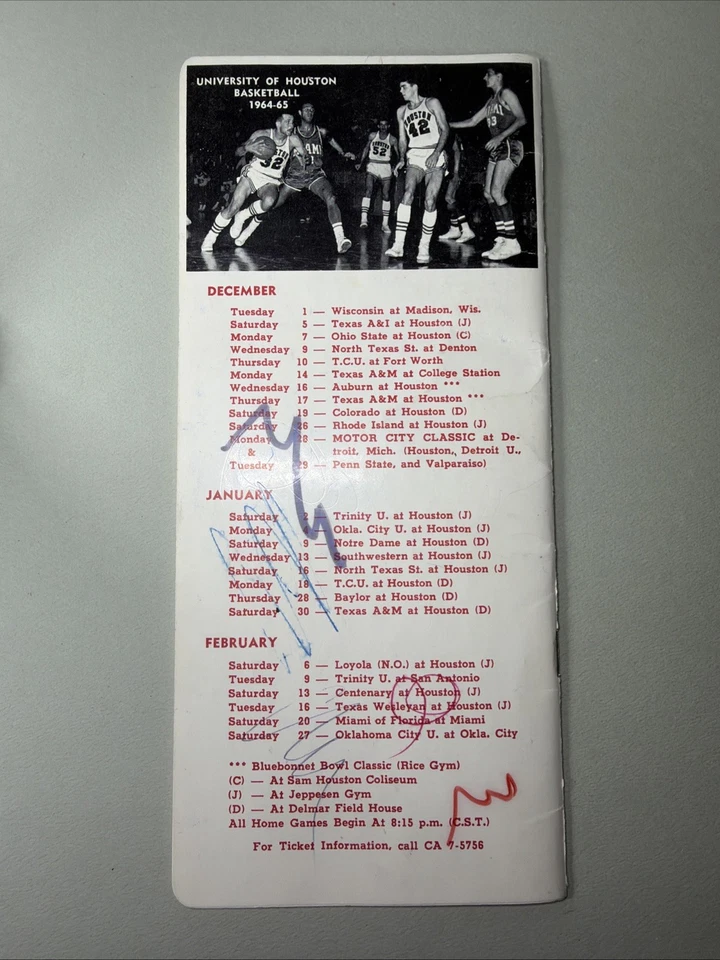 UNIVERSITY OF HOUSTON
BASKETBALL
1964-65
HOUSTON
32
AMI
HOUSTON
52
HOUSTON
42
MI
13
DECEMBER
Tuesday 1 — Wisconsin at Madison, Wis.
Saturday 5 — Texas A&I at Houston (J)
Monday 7 — Ohio State at Houston (C)
Wednesday 9 — North Texas St. at Denton
Thursday 10 — T.C.U. at Fort Worth
Monday 14 — Texas A&M at College Station
Wednesday 16 — Auburn at Houston ***
Thursday 17 — Texas A&M at Houston ***
Saturday 19 — Colorado at Houston (D)
Saturday 26 — Rhode Island at Houston (J)
Monday 28 — MOTOR CITY CLASSIC at De-
& troit, Mich. (Houston, Detroit U.,
Tuesday 29 — Penn State, and Valparaiso)
JANUARY
Saturday 2 — Trinity U. at Houston (J)
Monday 4 — Okla. City U. at Houston (J)
Saturday 9 — Notre Dame at Houston (D)
Wednesday 13 — Southwestern at Houston (J)
Saturday 16 — North Texas St. at Houston (J)
Monday 18 — T.C.U. at Houston (D)
Thursday 28 — Baylor at Houston (D)
Saturday 30 — Texas A&M at Houston (D)
FEBRUARY
Saturday 6 — Loyola (N.O.) at Houston (J)
Tuesday 9 — Trinity U. at San Antonio
Saturday 13 — Centenary at Houston (J)
Tuesday 16 — Texas Wesleyan at Houston (J)
Saturday 20 — Miami of Florida at Miami
Saturday 27 — Oklahoma City U. at Okla. City
*** Bluebonnet Bowl Classic (Rice Gym)
(C) — At Sam Houston Coliseum
(J) — At Jeppesen Gym
(D) — At Delmar Field House
All Home Games Begin At 8:15 p.m. (C.S.T.)
For Ticket Information, call CA 7-5756